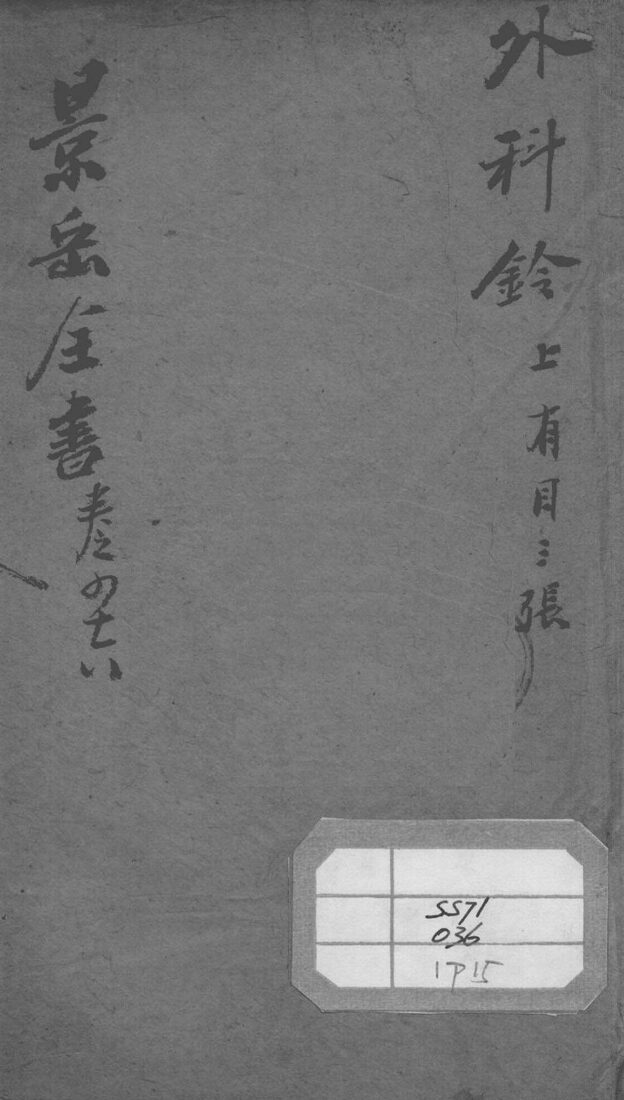 外科鈐上有目三張
景岳全書卷之四十六
SS71
036
1P15